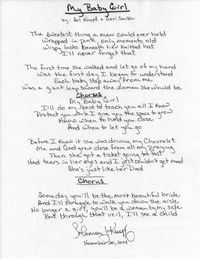 My Baby Girl
by: Del Knupf & Geri Smith
The sweetest thing a man could ever hold
Wrapped in pink, only moments old
Wisps locks beneath her knitted hat
I'll never forget that
The first time she walked and let go of my hand
Was the first day I began to understand
Each baby step away from me
Was a giant leap toward the woman she would be
Chorus
My Baby Girl
I'll do my best to teach you all I know
Protect you while I give you the space to grow
Know when to hold you close
And when to let you go
Before I knew it she was driving my Chevrolet
Me and God grew close from all my praying
Then she got a ticket going too fast
Had tears in her eyes and I just couldn't get mad
She's just like her Dad
Chorus
Someday you'll be the most beautiful bride
And I'll struggle to walk you down the aisle
No longer a girl, you'll be a woman by my side
But through that veil, I'll see a child
November 20, 2014